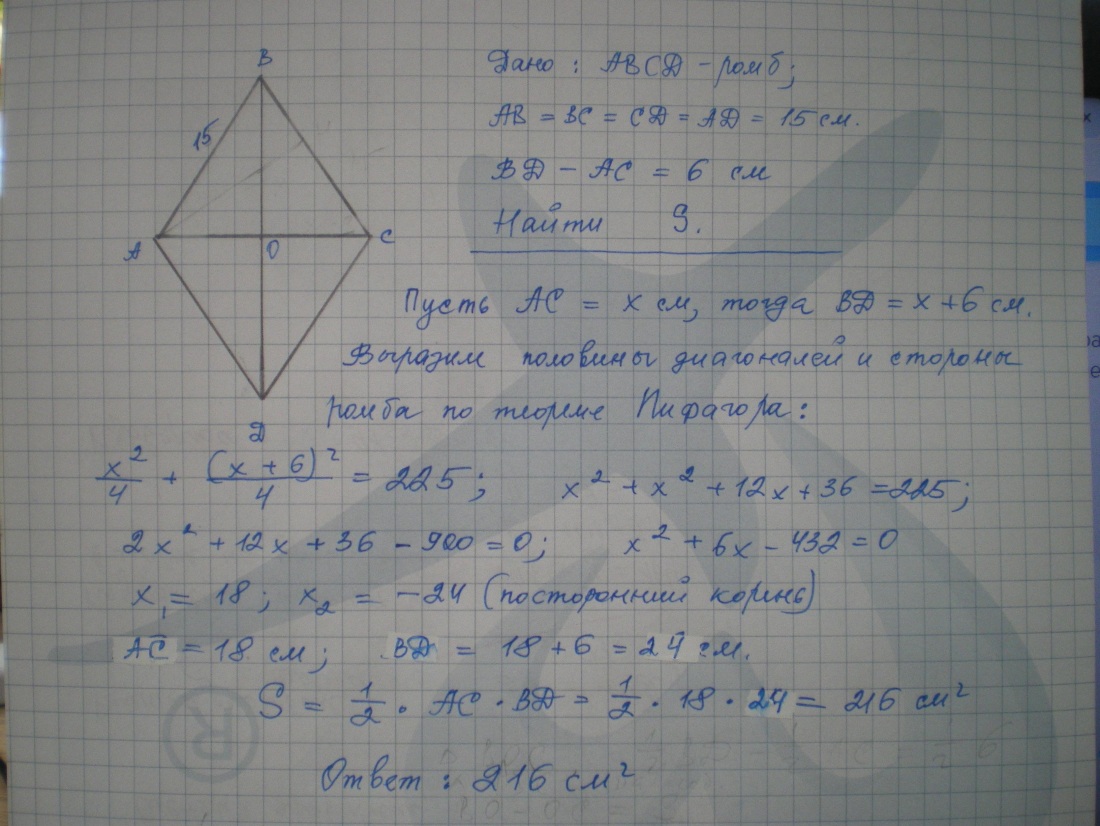 B
15
A
O
C
Д
Дано : ABCД - ромб;
AB = BC = CД = AД = 15 см.
BД - AC = 6 см
Найти S.
Пусть AC = x см, тогда BД = x + 6 см.
Выразим половины диагоналей и стороны
ромба по теореме Пифагора:
x²/4 + (x + 6)²/4 = 225; x² + x² + 12x + 36 = 225;
2x² + 12x + 36 - 900 = 0; x² + 6x - 432 = 0
x₁ = 18; x₂ = -24 (посторонний корень)
AC = 18 см; BД = 18 + 6 = 24 см.
S = 1/2 · AC · BД = 1/2 · 18 · 24 = 216 см²
Ответ : 216 см²
®